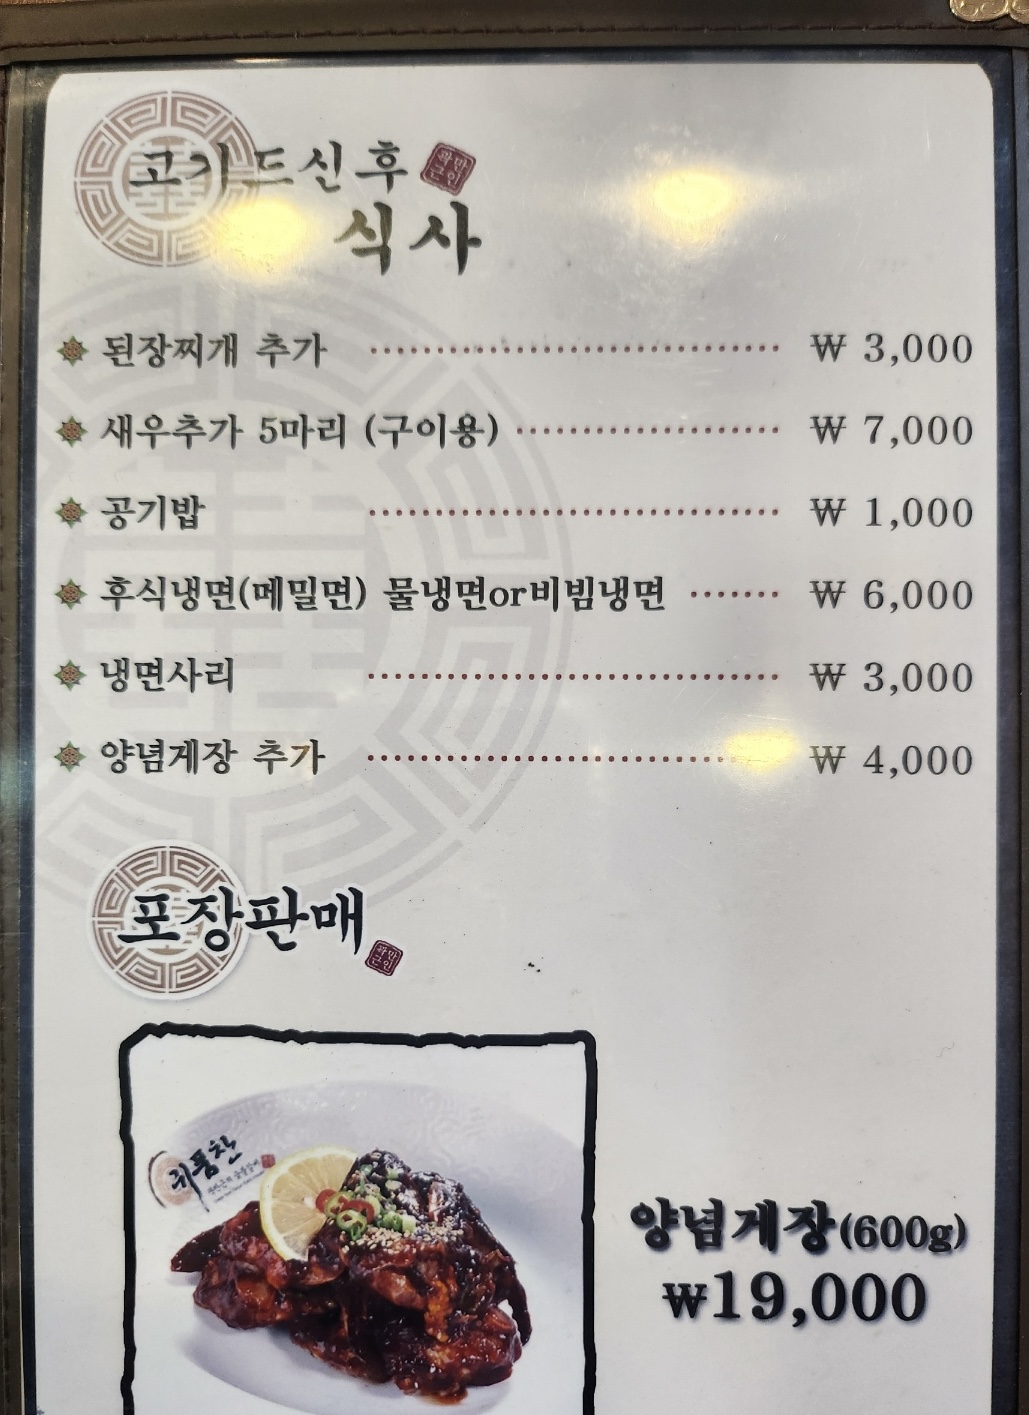 고기드신후
식사
된장찌개 추가 ₩ 3,000
새우추가 5마리 (구이용) ₩ 7,000
공기밥 ₩ 1,000
후식냉면(메밀면) 물냉면or비빔냉면 ₩ 6,000
냉면사리 ₩ 3,000
양념게장 추가 ₩ 4,000
포장판매
양념게장(600g)
₩19,000